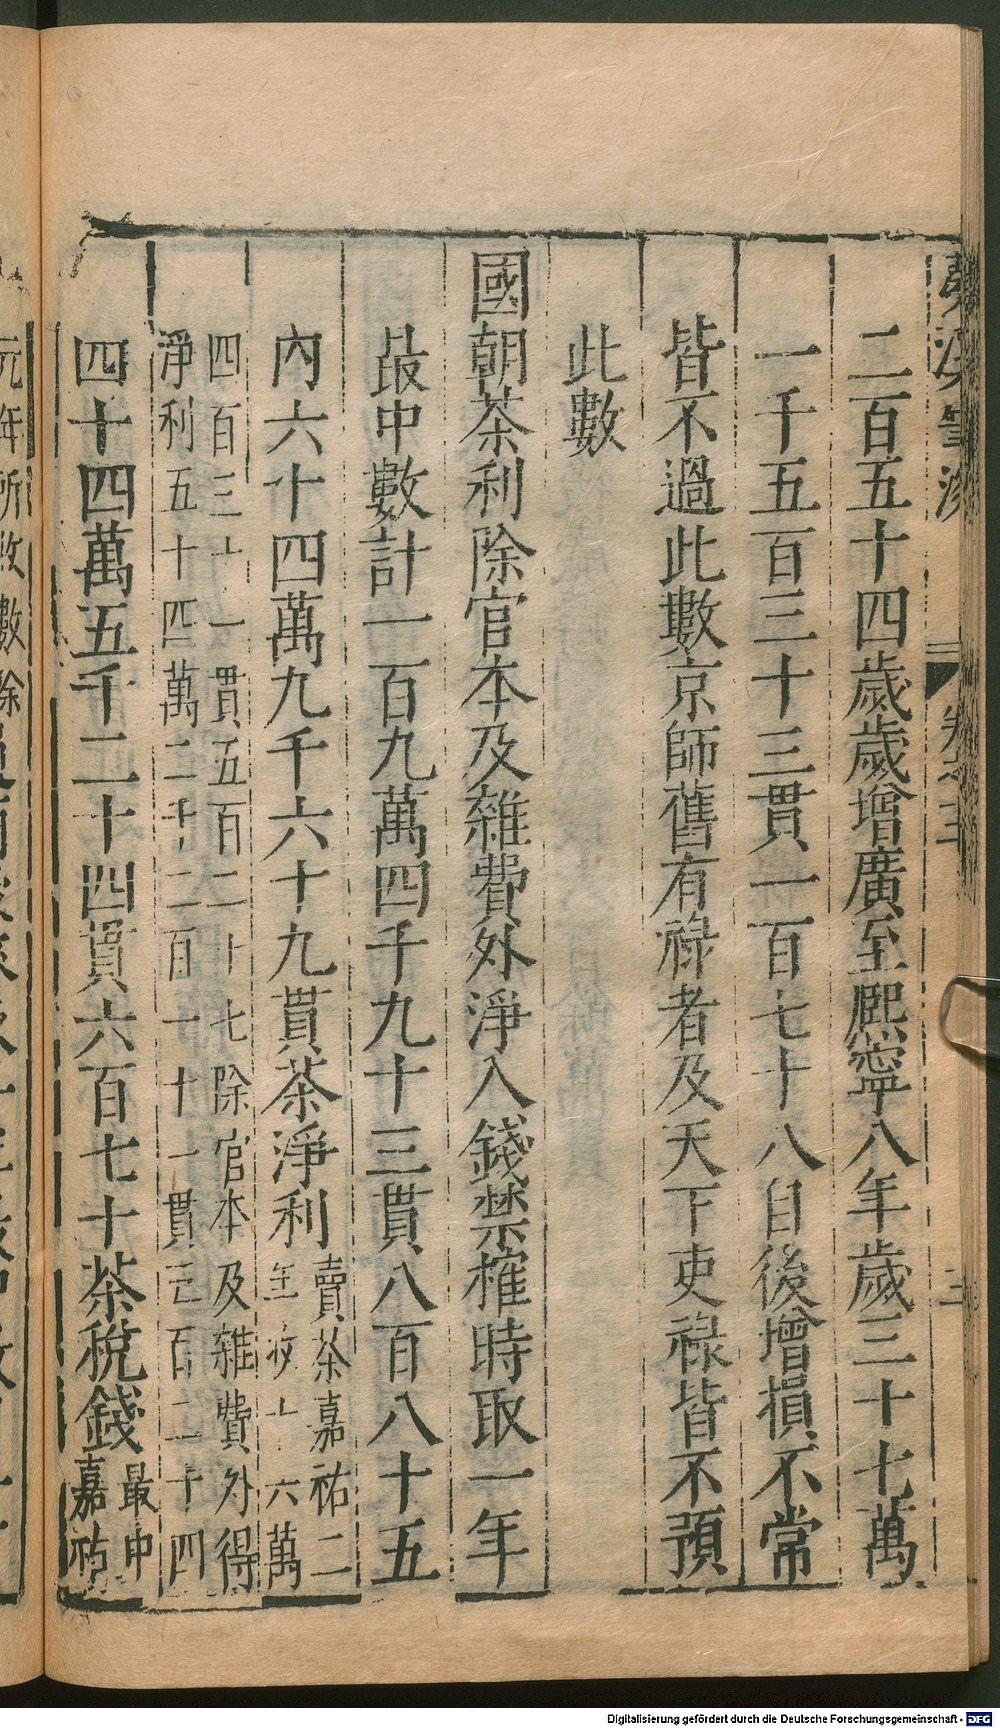 夢溪筆談 卷十二 二
二百五十四歲歲增廣至熙寧八年歲三十七萬
一千五百三十三貫一百七十八自後增損不常
皆不過此數京師舊有祿者及天下吏祿皆不預
此數
國朝茶利除官本及雜費外淨入錢禁榷時取一年
最中數計一百九萬四千九十三貫八百八十五
內六十四萬九千六十九貫茶淨利
賣茶嘉祐二
年收十六萬
四百三十一貫五百二十七除官本及雜費外得
淨利五十四萬二千二百一十一貫三百二十四
四十四萬五千二十四貫六百七十茶稅錢
最中
嘉祐
元年所收數除
Digitalisierung gefördert durch die Deutsche Forschungsgemeinschaft - DFG